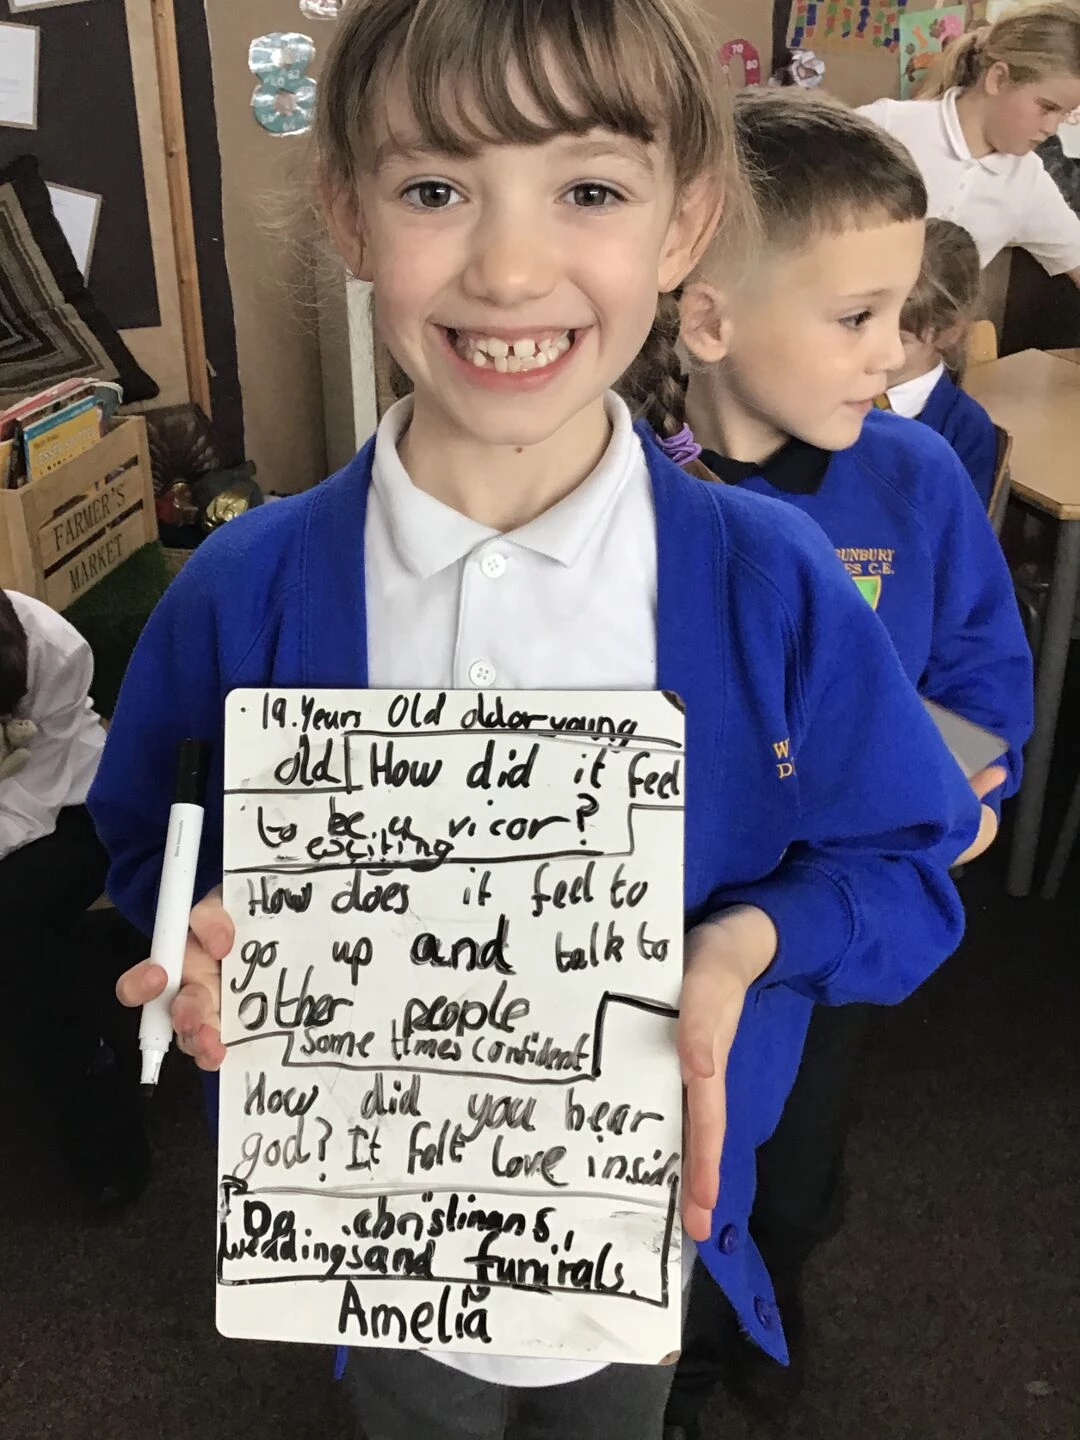 19.Years Old older young
old How did it feel
to be a vicor?
esciting
How does it feel to
go up and talk to
other people
some times confident
How did you hear
god? It felt love inside
Do christinans,
weddings and funirals.
Amelia
FARMER'S
MARKET
BUNBURY
C.E.
70
80